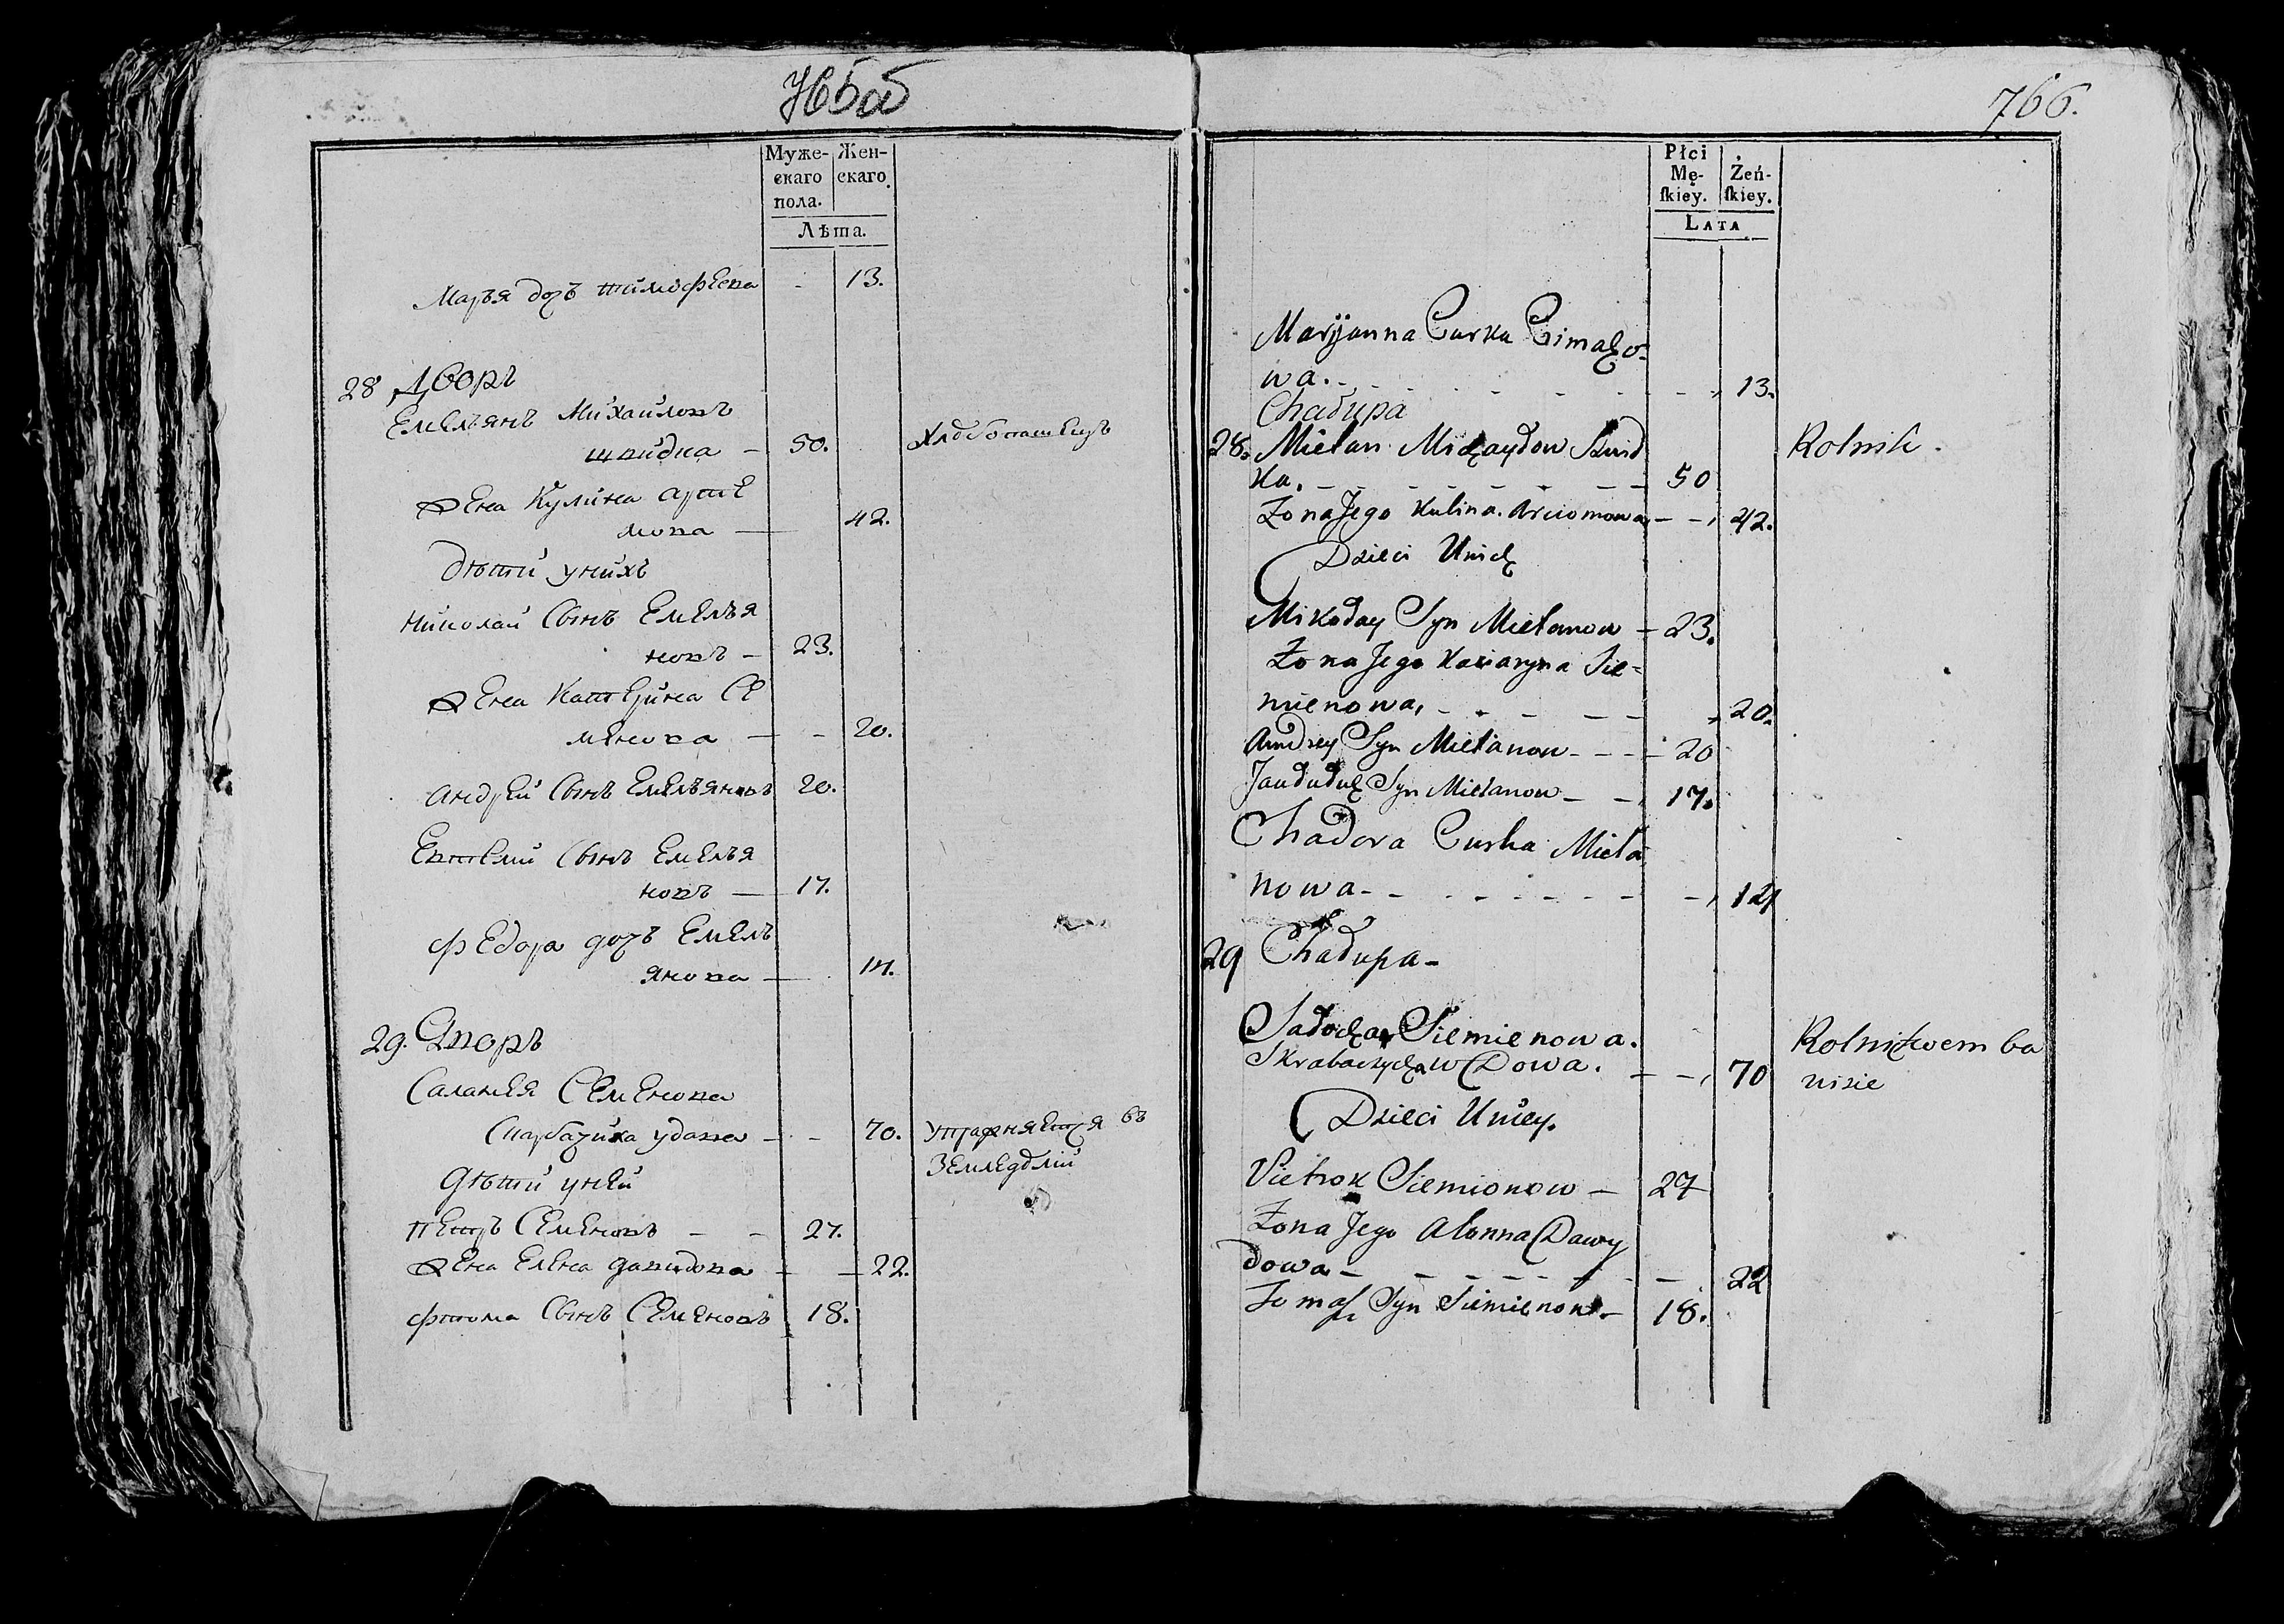 765об
Муже-
скаго
пола.
Жен-
скаго
Лѣта.
Марья дочь тимофеева - 13.
28 Дворъ
Емельянъ Михайловъ
швидка - 50. Хлѣбопашецъ
жена Кулина арте
мова — 42.
дѣти унихъ
николай Сынъ Емелья
новъ - 23.
жена Катерина Се
менова — - 20.
андрей Сынъ Емельяновъ 20.
Евтвей Сынъ Емелья
новъ — 17.
федора дочъ Емель
янова — 14.
29. Дворъ
Саланея Семенова
Скарбачиха удова - - 70. Упражняется въ
Земледѣлiи
дѣти уней
петръ Семеновъ - - 27.
жена Елена давидова - - 22.
фтома Сынъ Семеновъ 18.
766.
Płci
Mę-
ſkiey.
Żeń-
ſkiey.
LATA
Maryanna Curka Cimaho-
wa. - - - - - - 13.
Chałupa
28. Mielan Michayłow Szwid
ka. - - - - - - 50 Rolnik.
Żona Jego Kulina. Arciomowa - - 42.
Dzieci Unich
Mikołay Syn Mielanow - 23.
Żona Jego Kaciaryna Sie-
mienowa, - - - - - 20.
Andrey Syn Mielanow - - - 20
Syn Mielanow - - 17.
Chadora Curka Miela
nowa - - - - - - - - 14
29 Chałupa -
Sałocha Siemienowa.
Skrabaczycha wDowa. - - 70
Rolnictwem ba
wisie
Dzieci Uniey.
Pietrok Siemionow - 27
Żona Jego Alanna Dawy
dowa - - - - - - - 22
Tomaſz Syn Siemienow - 18.